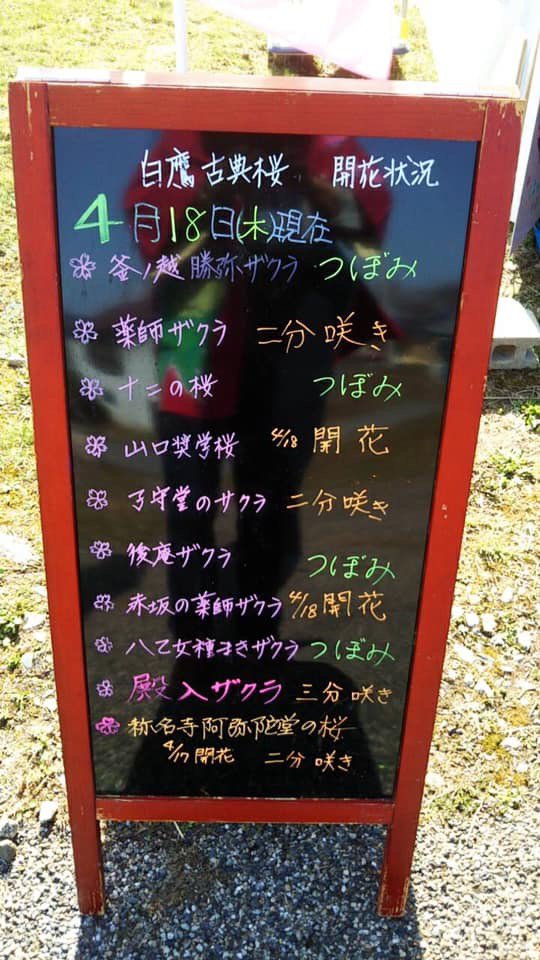 白鷹古典桜 開花状況
4月18日(木)現在
釜ノ越 勝弥ザクラ つぼみ
薬師ザクラ 二分咲き
十二の桜 つぼみ
山口奨学桜 4/18 開花
子守堂のサクラ 二分咲き
後庵ザクラ つぼみ
赤坂の薬師ザクラ 4/18 開花
八乙女種まきザクラ つぼみ
殿入ザクラ 三分咲き
称名寺阿弥陀堂の桜
4/17 開花 二分咲き